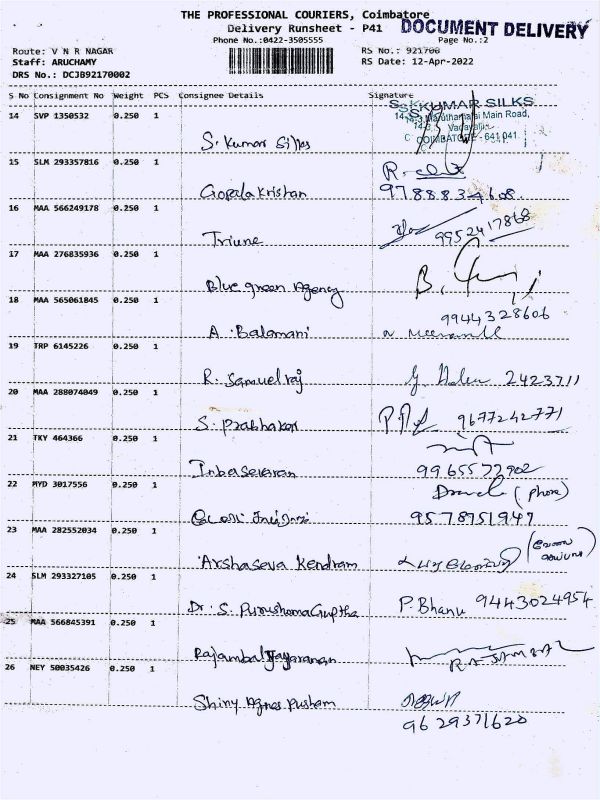 THE PROFESSIONAL COURIERS, Coimbatore
Delivery Runsheet - P41
DOCUMENT DELIVERY
Phone No.:0422-3505555
Page No.:2
Route: V N R NAGAR
RS No.: 921700
Staff: ARUCHAMY
RS Date: 12-Apr-2022
DRS No.: DCJB92170002
S No Consignment No Weight PCS Consignee Details Signature
14 SVP 1350532 0.250 1
S. Kumar Silks
S.S.KUMAR SILKS
Maruthamalai Main Road,
Vadavalli
COIMBATORE - 641 041
15 SLM 293357816 0.250 1
Gopalakrishan
9788834608
16 MAA 566249178 0.250 1
Triune 9952417868
17 MAA 276835936 0.250 1
Blue green Agency
18 MAA 565061845 0.250 1
9944328606
A. Balamani
19 TRP 6145226 0.250 1
R. Samuelraj G. Helen 2423711
20 MAA 288074049 0.250 1
S. Prabhakar 9677242771
21 TKY 464366 0.250 1
Inbasekaran 9965572902
22 MYD 3017556 0.250 1
(phone)
9578951947
23 MAA 282552034 0.250 1
Arshaseva Kendram
24 SLM 293327105 0.250 1
Dr. S. PurushomaGuptha P. Bhanu 9443024954
25 MAA 566845391 0.250 1
Rajambal Jayaranan RAJAMBAL
26 NEY 50035426 0.250 1
Shiny Agnes Pusham
9629371620